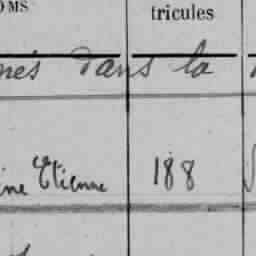 OMS
tricules
nés dans la
ine Etienne 188